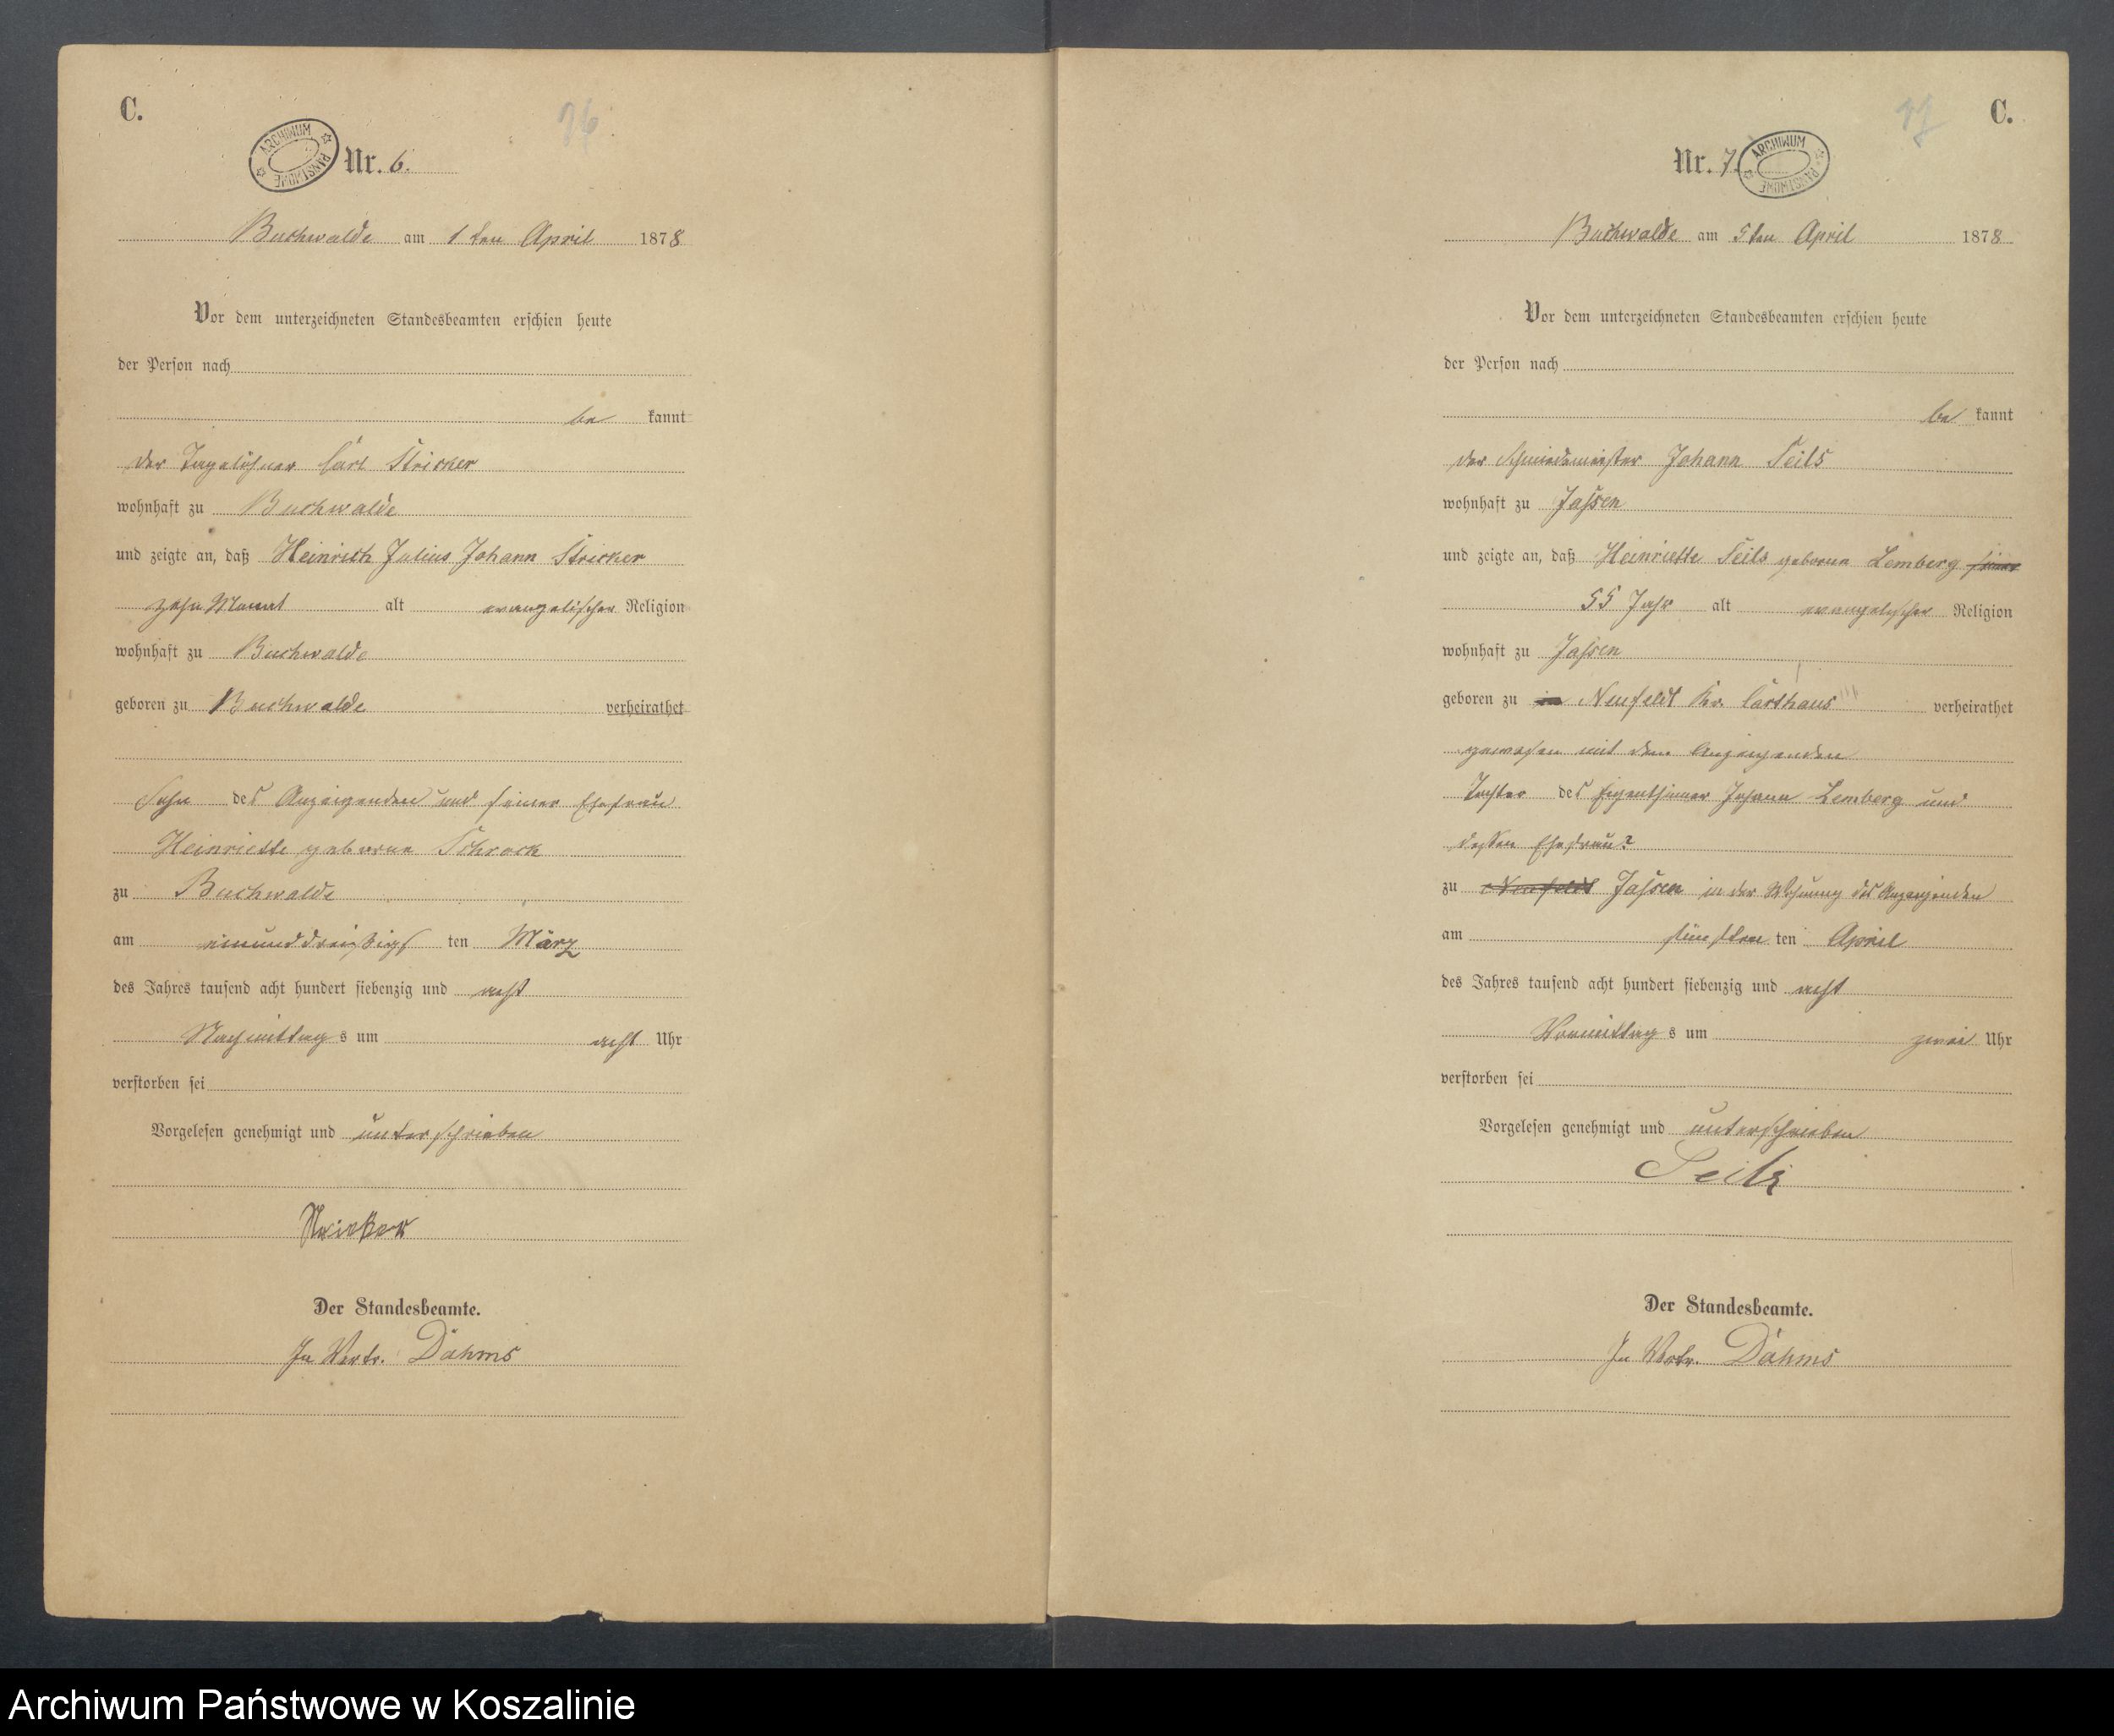 C.
76.
ARCHIWUM PAŃSTWOWE
Nr. 6.
Buchwalde am 1ten April 1878
Vor dem unterzeichneten Standesbeamten erschien heute
der Person nach
be kannt
der Tagelöhner Carl Stricker
wohnhaft zu Buchwalde
und zeigte an, daß Heinrich Julius Johann Stricker
zehn Monat alt evangelischer Religion
wohnhaft zu Buchwalde
geboren zu Buchwalde verheirathet
Sohn des Anzeigenden und seiner Ehefrau
Heinriette geborene Schrock
zu Buchwalde
am einunddreißigs ten März
des Jahres tausend acht hundert siebenzig und acht
Nachmittag s um acht Uhr
verstorben sei
Vorgelesen genehmigt und unterschrieben
Der Standesbeamte.
In Vertr. Dahms
C.
77
ARCHIWUM PAŃSTWOWE
Nr. 7.
Buchwalde am 5ten April 1878
Vor dem unterzeichneten Standesbeamten erschien heute
der Person nach
be kannt
der Schmiedemeister Johann Teils
wohnhaft zu Jassen
und zeigte an, daß Heinriette Teils geborene Lemberg
55 Jahr alt evangelischer Religion
wohnhaft zu Jassen
geboren zu in Neufeldt Kr. Carthaus verheirathet
gewesen mit dem Anzeigenden
Tochter des Eigenthümer Johann Lemberg und
dessen Ehefrau?
zu Neufeldt Jassen in der Wohnung des Anzeigenden
am fünften ten April
des Jahres tausend acht hundert siebenzig und acht
Vormittag s um zwei Uhr
verstorben sei
Vorgelesen genehmigt und unterschrieben
Teils
Der Standesbeamte.
In Vertr. Dahms
Archiwum Państwowe w Koszalinie